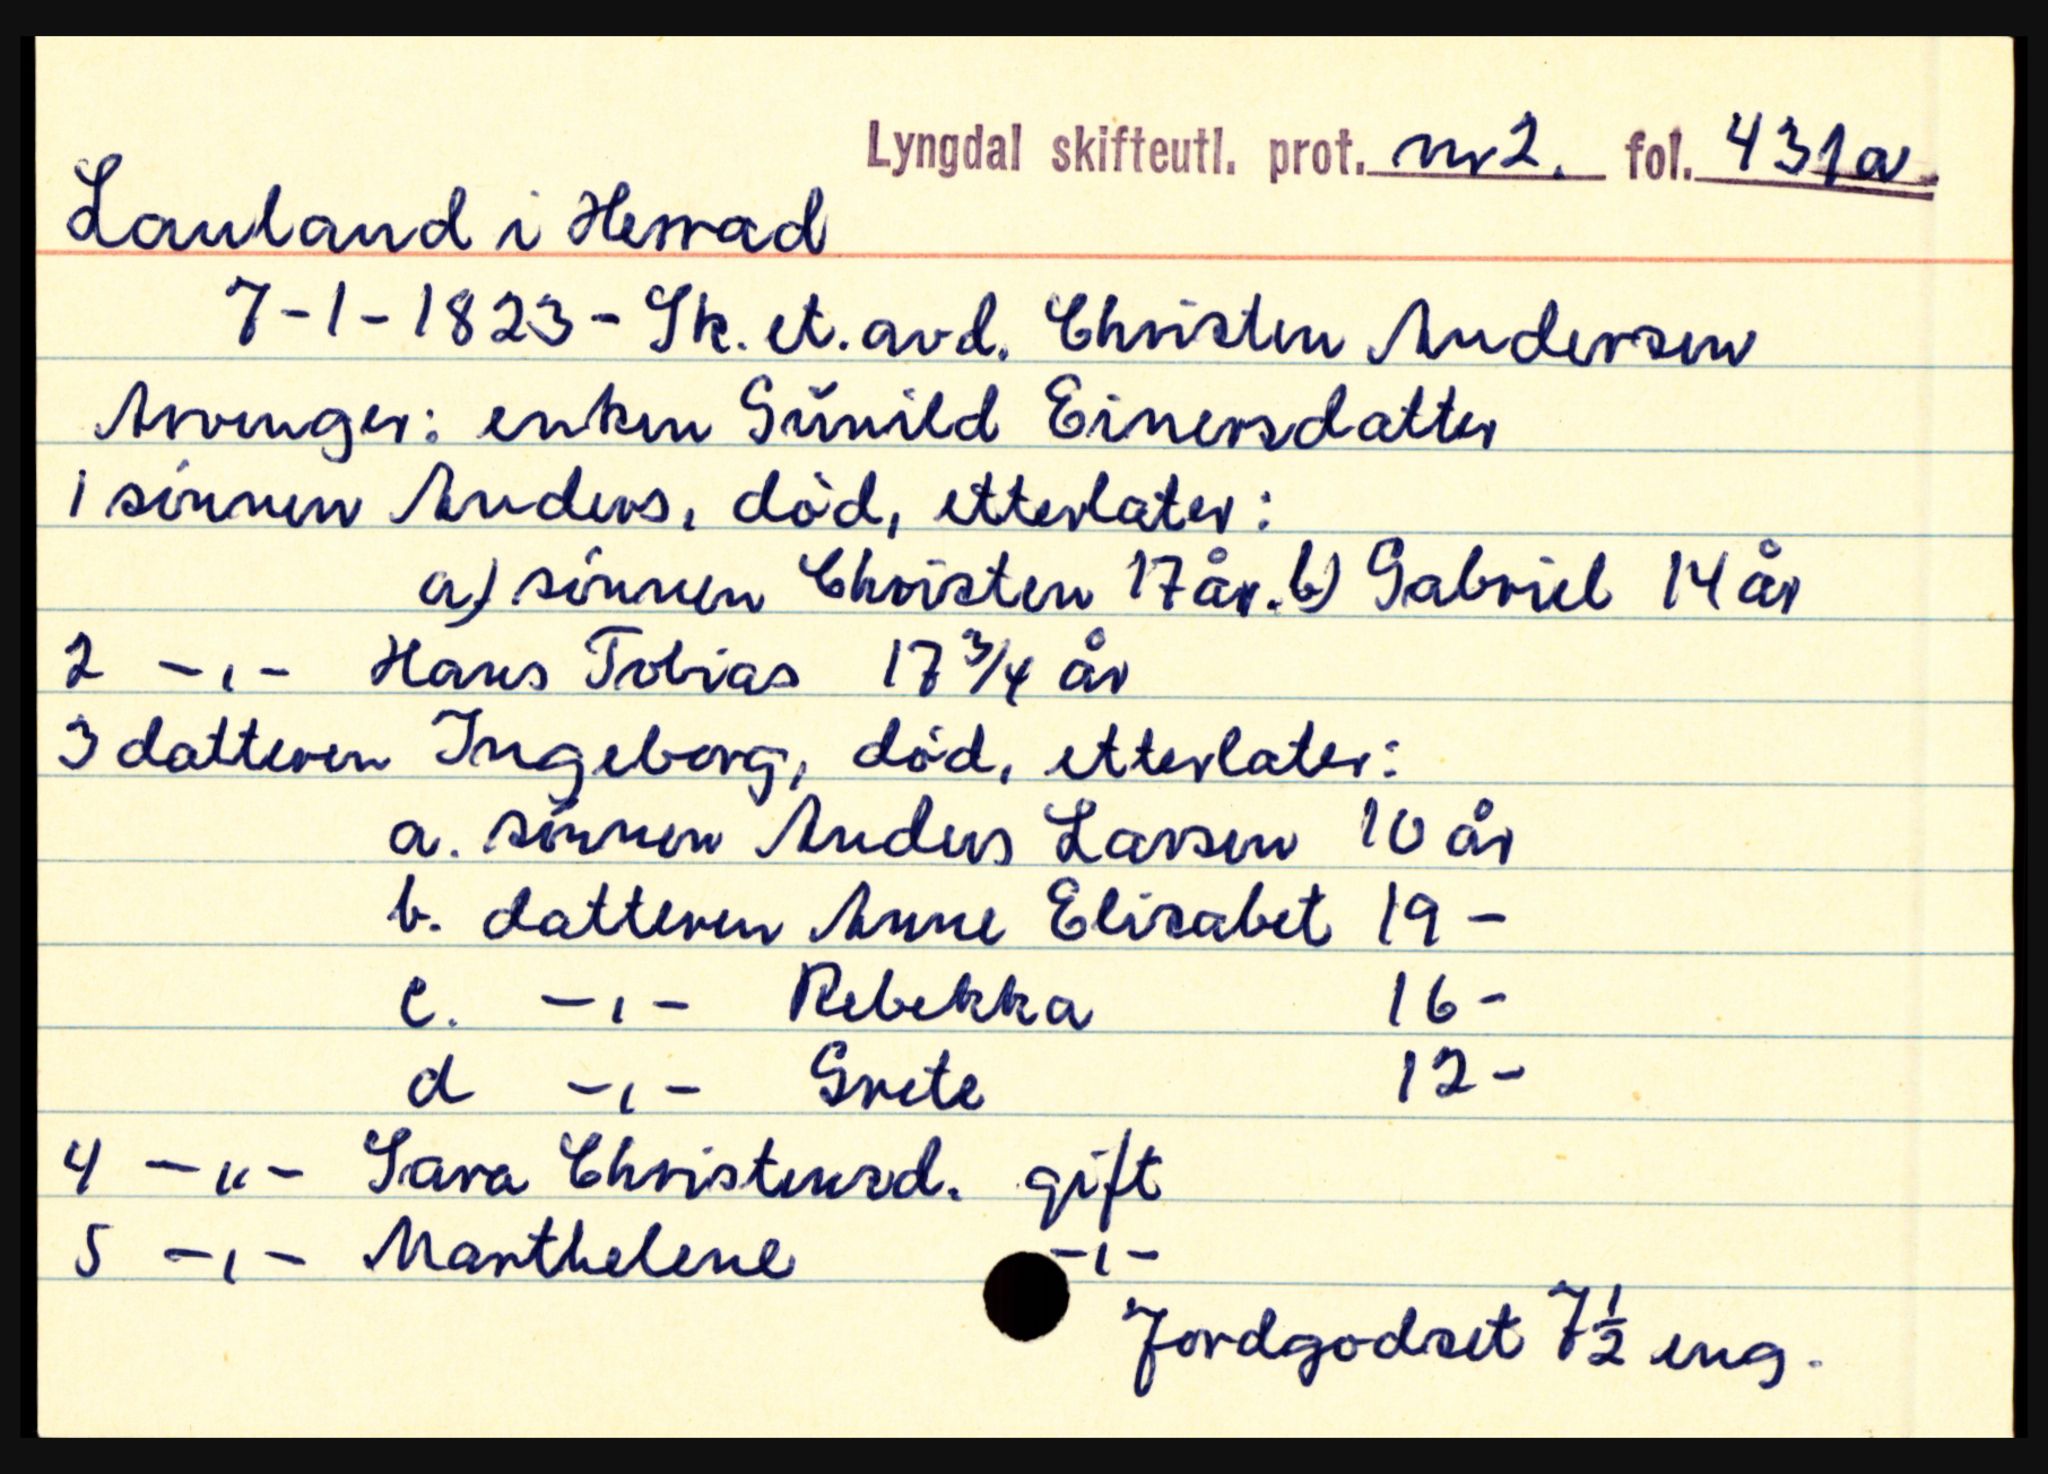 Lyngdal skifteutl. prot. nr 2. fol. 431a.
Lauland i Herrad
7-1-1823 - Sk. et. avd. Christen Andersen
Arvinger: enken Gŭnild Einersdatter
1 sönnen Anders, död, etterlater:
a) sönnen Christen 17 år. b) Gabriel 14 år
2 -,- Hans Tobias 17 3/4 år
3 datteren Ingeborg, död, etterlater:
a. sönnen Anders Larsen 10 år
b. datteren Anne Elisabet 19 -
c. -,- Rebekka 16 -
d -,- Grete 12 -
4 -"- Sara Christensd. gift
5 -,- Marthelene -,-
Jordgodset 7 1/2 eng.